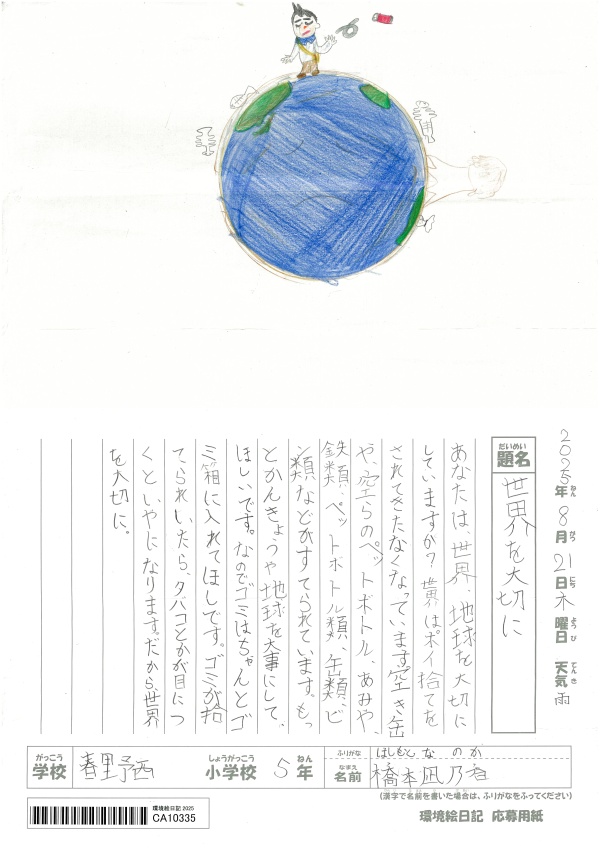 2025年 8月 21日 木曜日 天気 雨
ねん がつ にち ようび てんき
だいめい
題名 世界を大切に
あなたは、世界、地球を大切に
していますか?世界はポイ捨てを
されてきたなくなっています空き缶
や、空らのペットボトル、あみや、
鉄類、ペットボトル類、缶類、ビ
ン類などがすてられています。もっ
とかんきょうや地球を大事にして、
ほしいです。なのでゴミはちゃんとゴ
ミ箱に入れてほしです。ゴミが捨
てられいたら、タバコとかが目につ
くといやになります。だから、世界
を大切に。
がっこう しょうがっこう ねん
学校 春里予西 小学校 5年
ふりがな はしもと なのか
なまえ
名前 橋本凪乃香
(漢字で名前を書いた場合は、ふりがなをふってください)
環境絵日記 2025
CA10335
環境絵日記 応募用紙